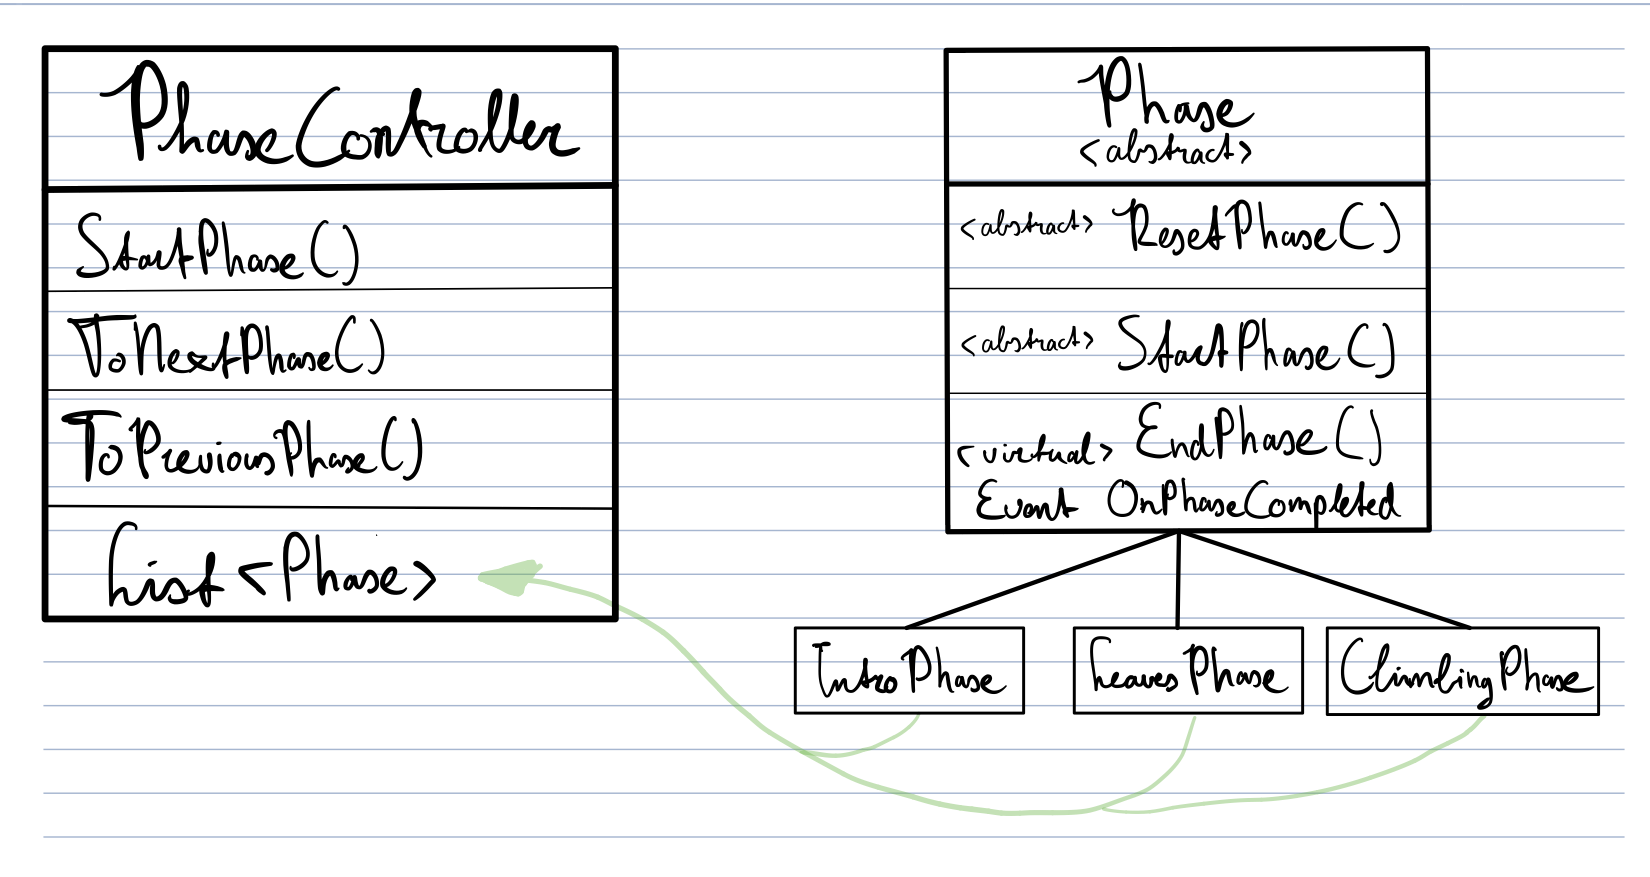 PhaseController
StartPhase()
ToNextPhase()
ToPreviousPhase()
List<Phase>
Phase
<abstract>
<abstract> ResetPhase()
<abstract> StartPhase()
<virtual> EndPhase()
Event OnPhaseCompleted
IntroPhase
LeavesPhase
ClimbingPhase